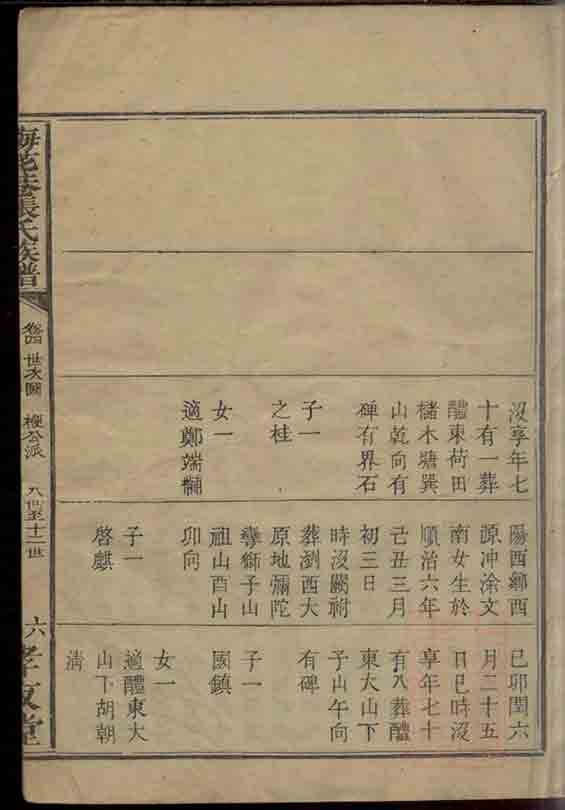 沒享年七
十有一葬
醴東荷田
櫧木塘巽
山乾向有
碑有界石
子一
之桂
女一
適鄭端黼
陽西鄉西
源冲涂文
南女生於
順治六年
己丑三月
初三日
時沒闕祔
葬瀏西大
原地彌陀
䃯獅子山
祖山酉山
卯向
子一
啓麒
己卯閏六
月二十五
日巳時沒
享年七十
有八葬醴
東大山下
子山午向
有碑
子一
國鎮
女一
適醴東大
山下胡朝
清
梅花巷張氏族譜
卷四 世次圖 極公派 八世至十二世
六
孝友堂